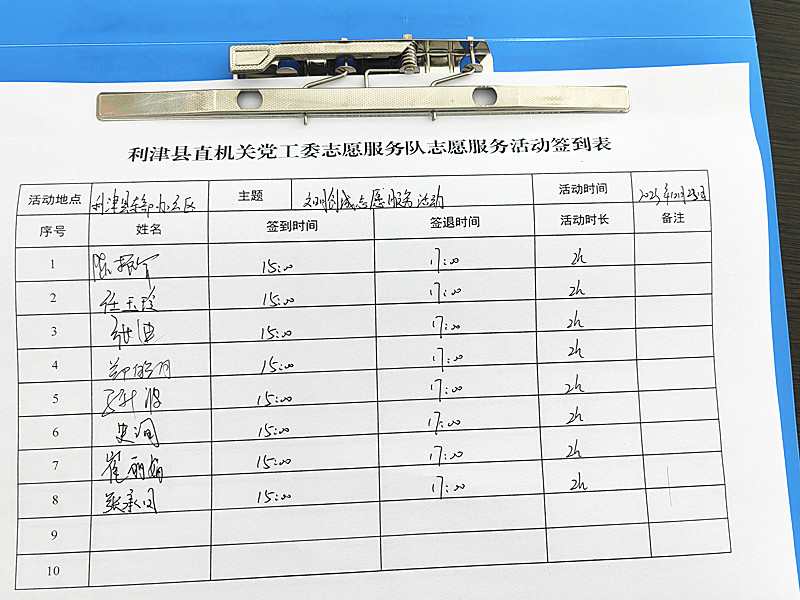 利津县直机关党工委志愿服务队志愿服务活动签到表
活动地点 利津县东郊办公区 主题 文明创城志愿服务活动 活动时间
序号 姓名 签到时间 签退时间 活动时长 备注
1 15:00 17:00 2h
2 任玉玲 15:00 17:00 2h
3 张迪 15:00 17:00 2h
4 15:00 17:00 2h
5 15:00 17:00 2h
6 史润 15:00 17:00 2h
7 崔丽娟 15:00 17:00 2h
8 张承凤 15:00 17:00 2h
9
10